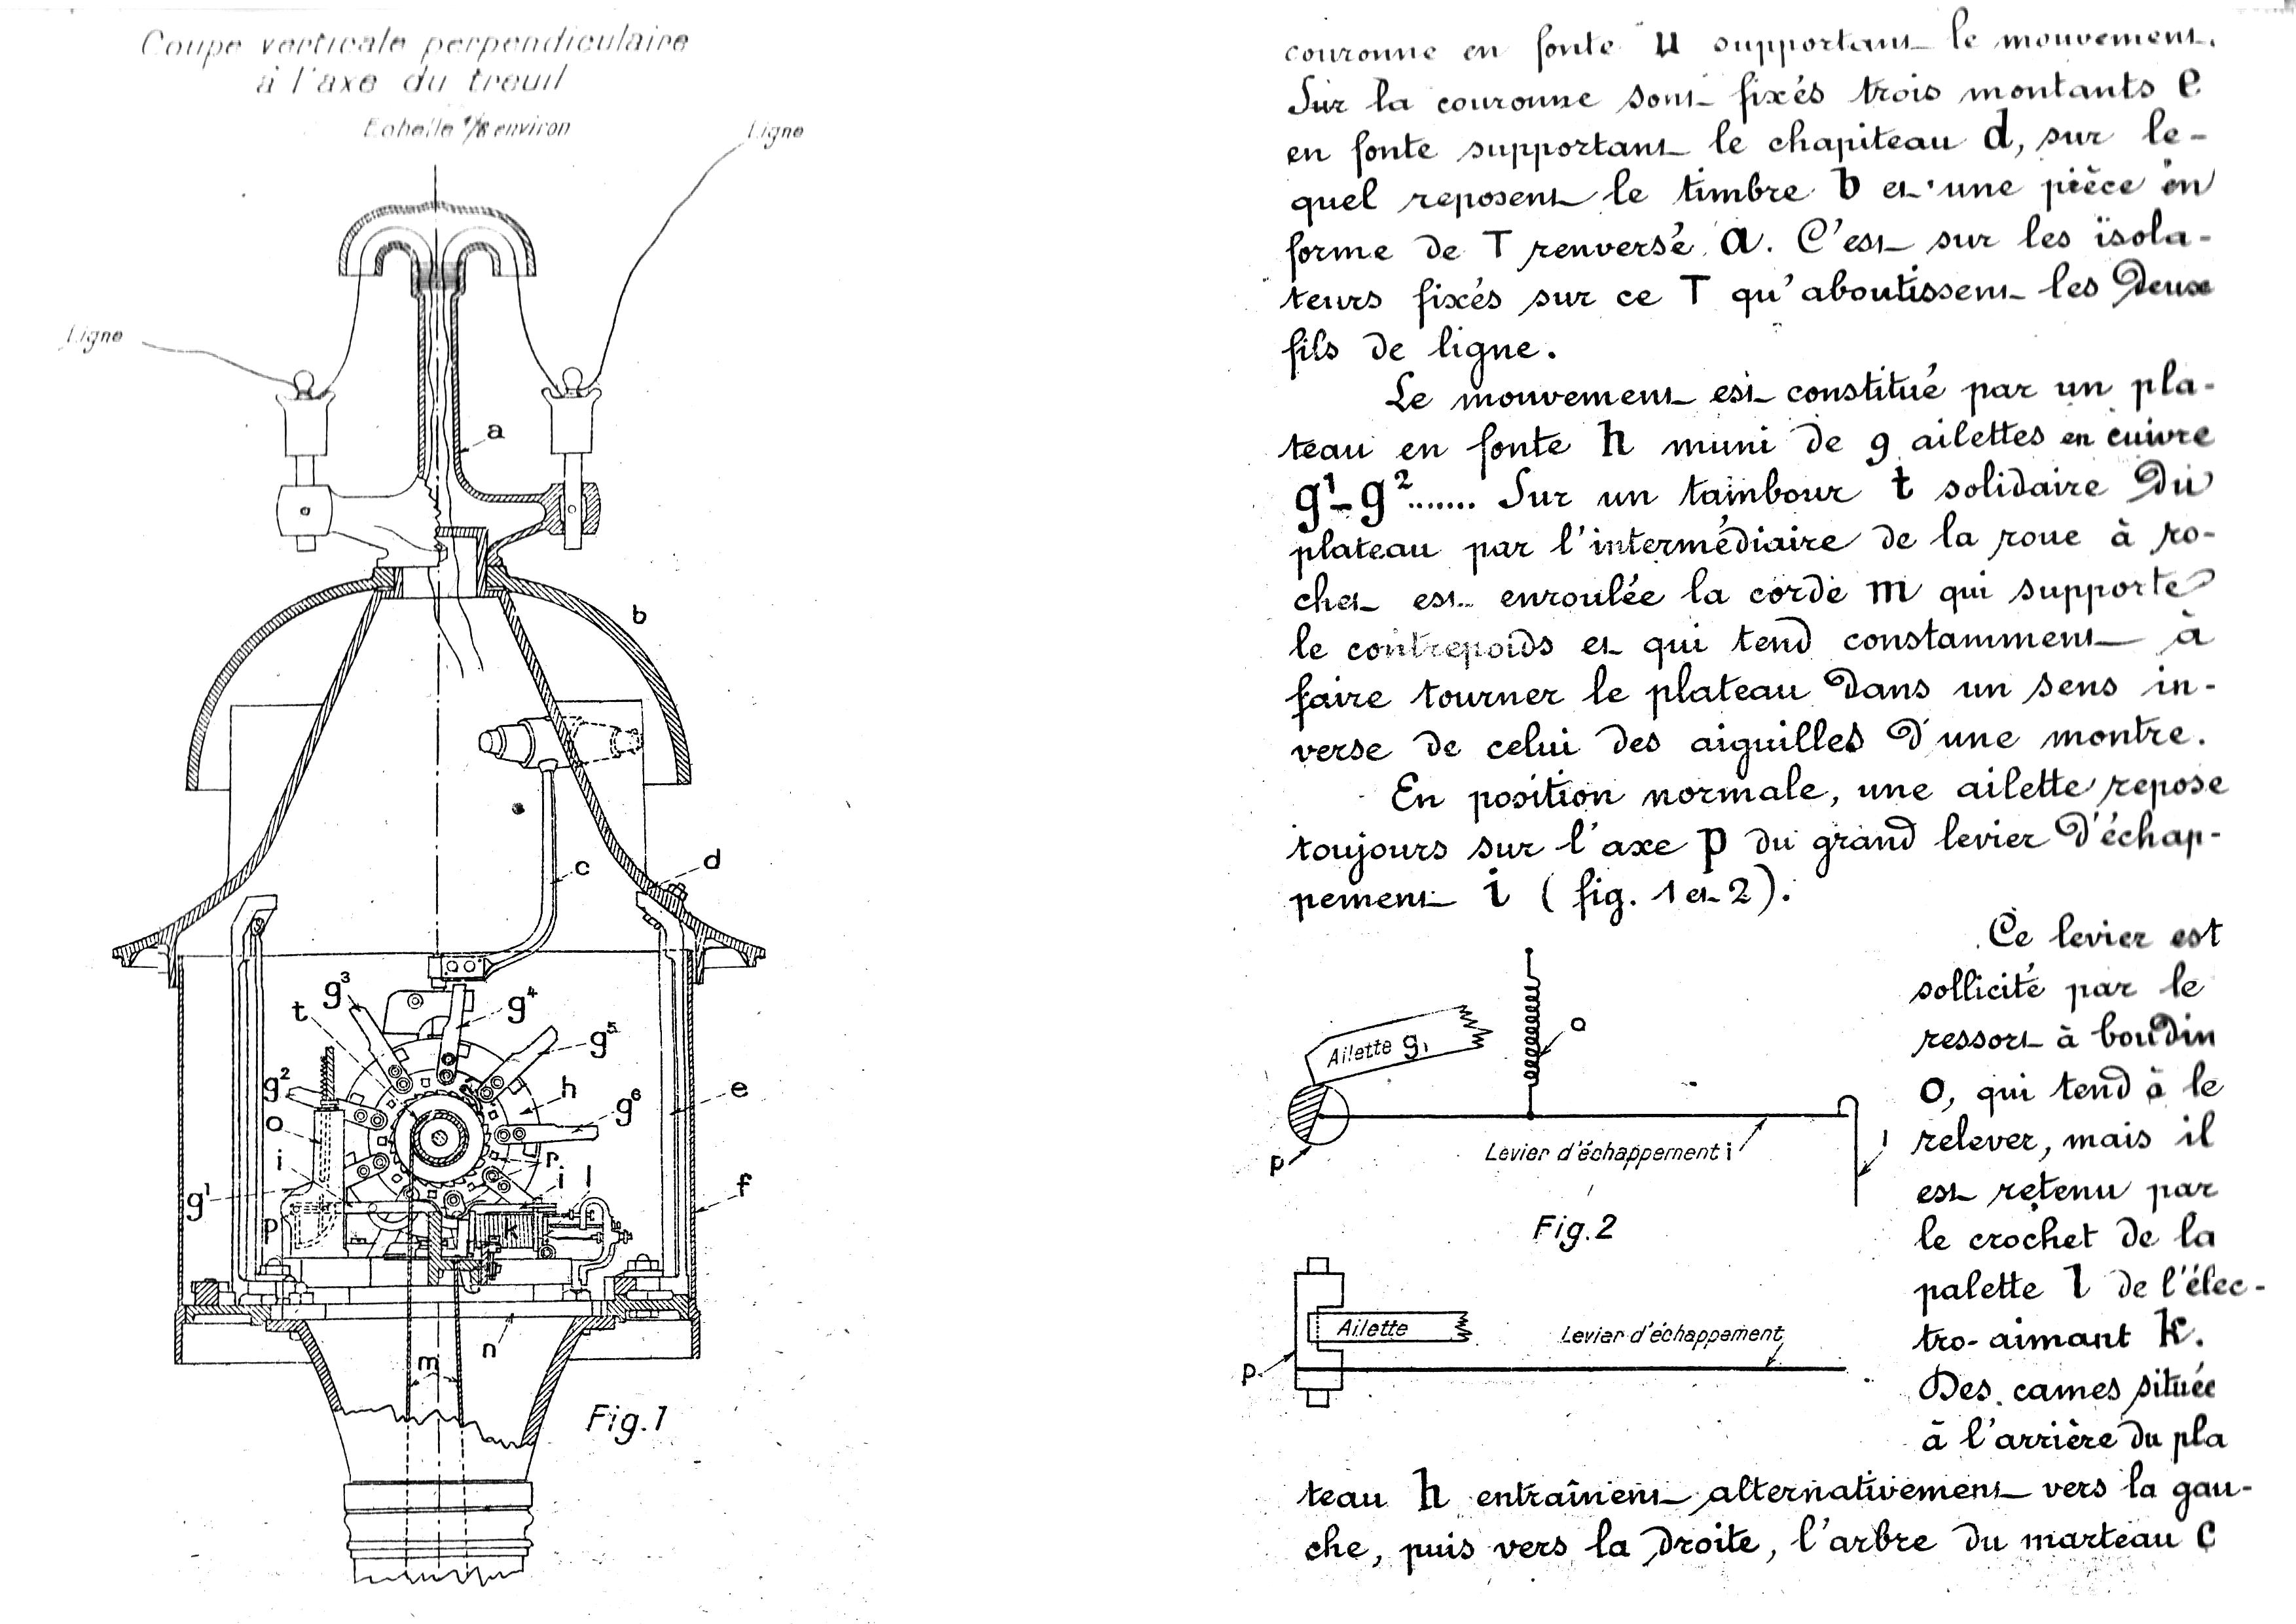 Coupe verticale perpendiculaire
à l'axe du treuil
Echelle 1/8 environ
Ligne
Ligne
a
b
c
d
g³
g⁴
t
g⁵
g²
h
g⁶
e
o
i
r
i
l
g¹
f
p
k
m
n
Fig.1
couronne en fonte u supportant le mouvement.
Sur la couronne sont fixés trois montants e
en fonte supportant le chapiteau d, sur le-
quel reposent le timbre b et une pièce en
forme de T renversé a. C'est sur les isola-
teurs fixés sur ce T qu'aboutissent les deux
fils de ligne.
Le mouvement est constitué par un pla-
teau en fonte h muni de 9 ailettes en cuivre
g¹-g²....... Sur un tambour t solidaire du
plateau par l'intermédiaire de la roue à ro-
chet est enroulée la corde m qui supporte
le contrepoids et qui tend constamment à
faire tourner le plateau dans un sens in-
verse de celui des aiguilles d'une montre.
En position normale, une ailette repose
toujours sur l'axe p du grand levier d'échap-
pement i (fig. 1 et 2).
Ce levier est
sollicité par le
ressort à boudin
o, qui tend à le
relever, mais il
est retenu par
le crochet de la
palette l de l'élec-
tro-aimant k.
Des cames située
à l'arrière du pla
teau h entraînent alternativement vers la gau-
che, puis vers la droite, l'arbre du marteau c
Ailette g₁
o
Levier d'échappement i
l
p
Fig.2
Ailette
Levier d'échappement
p